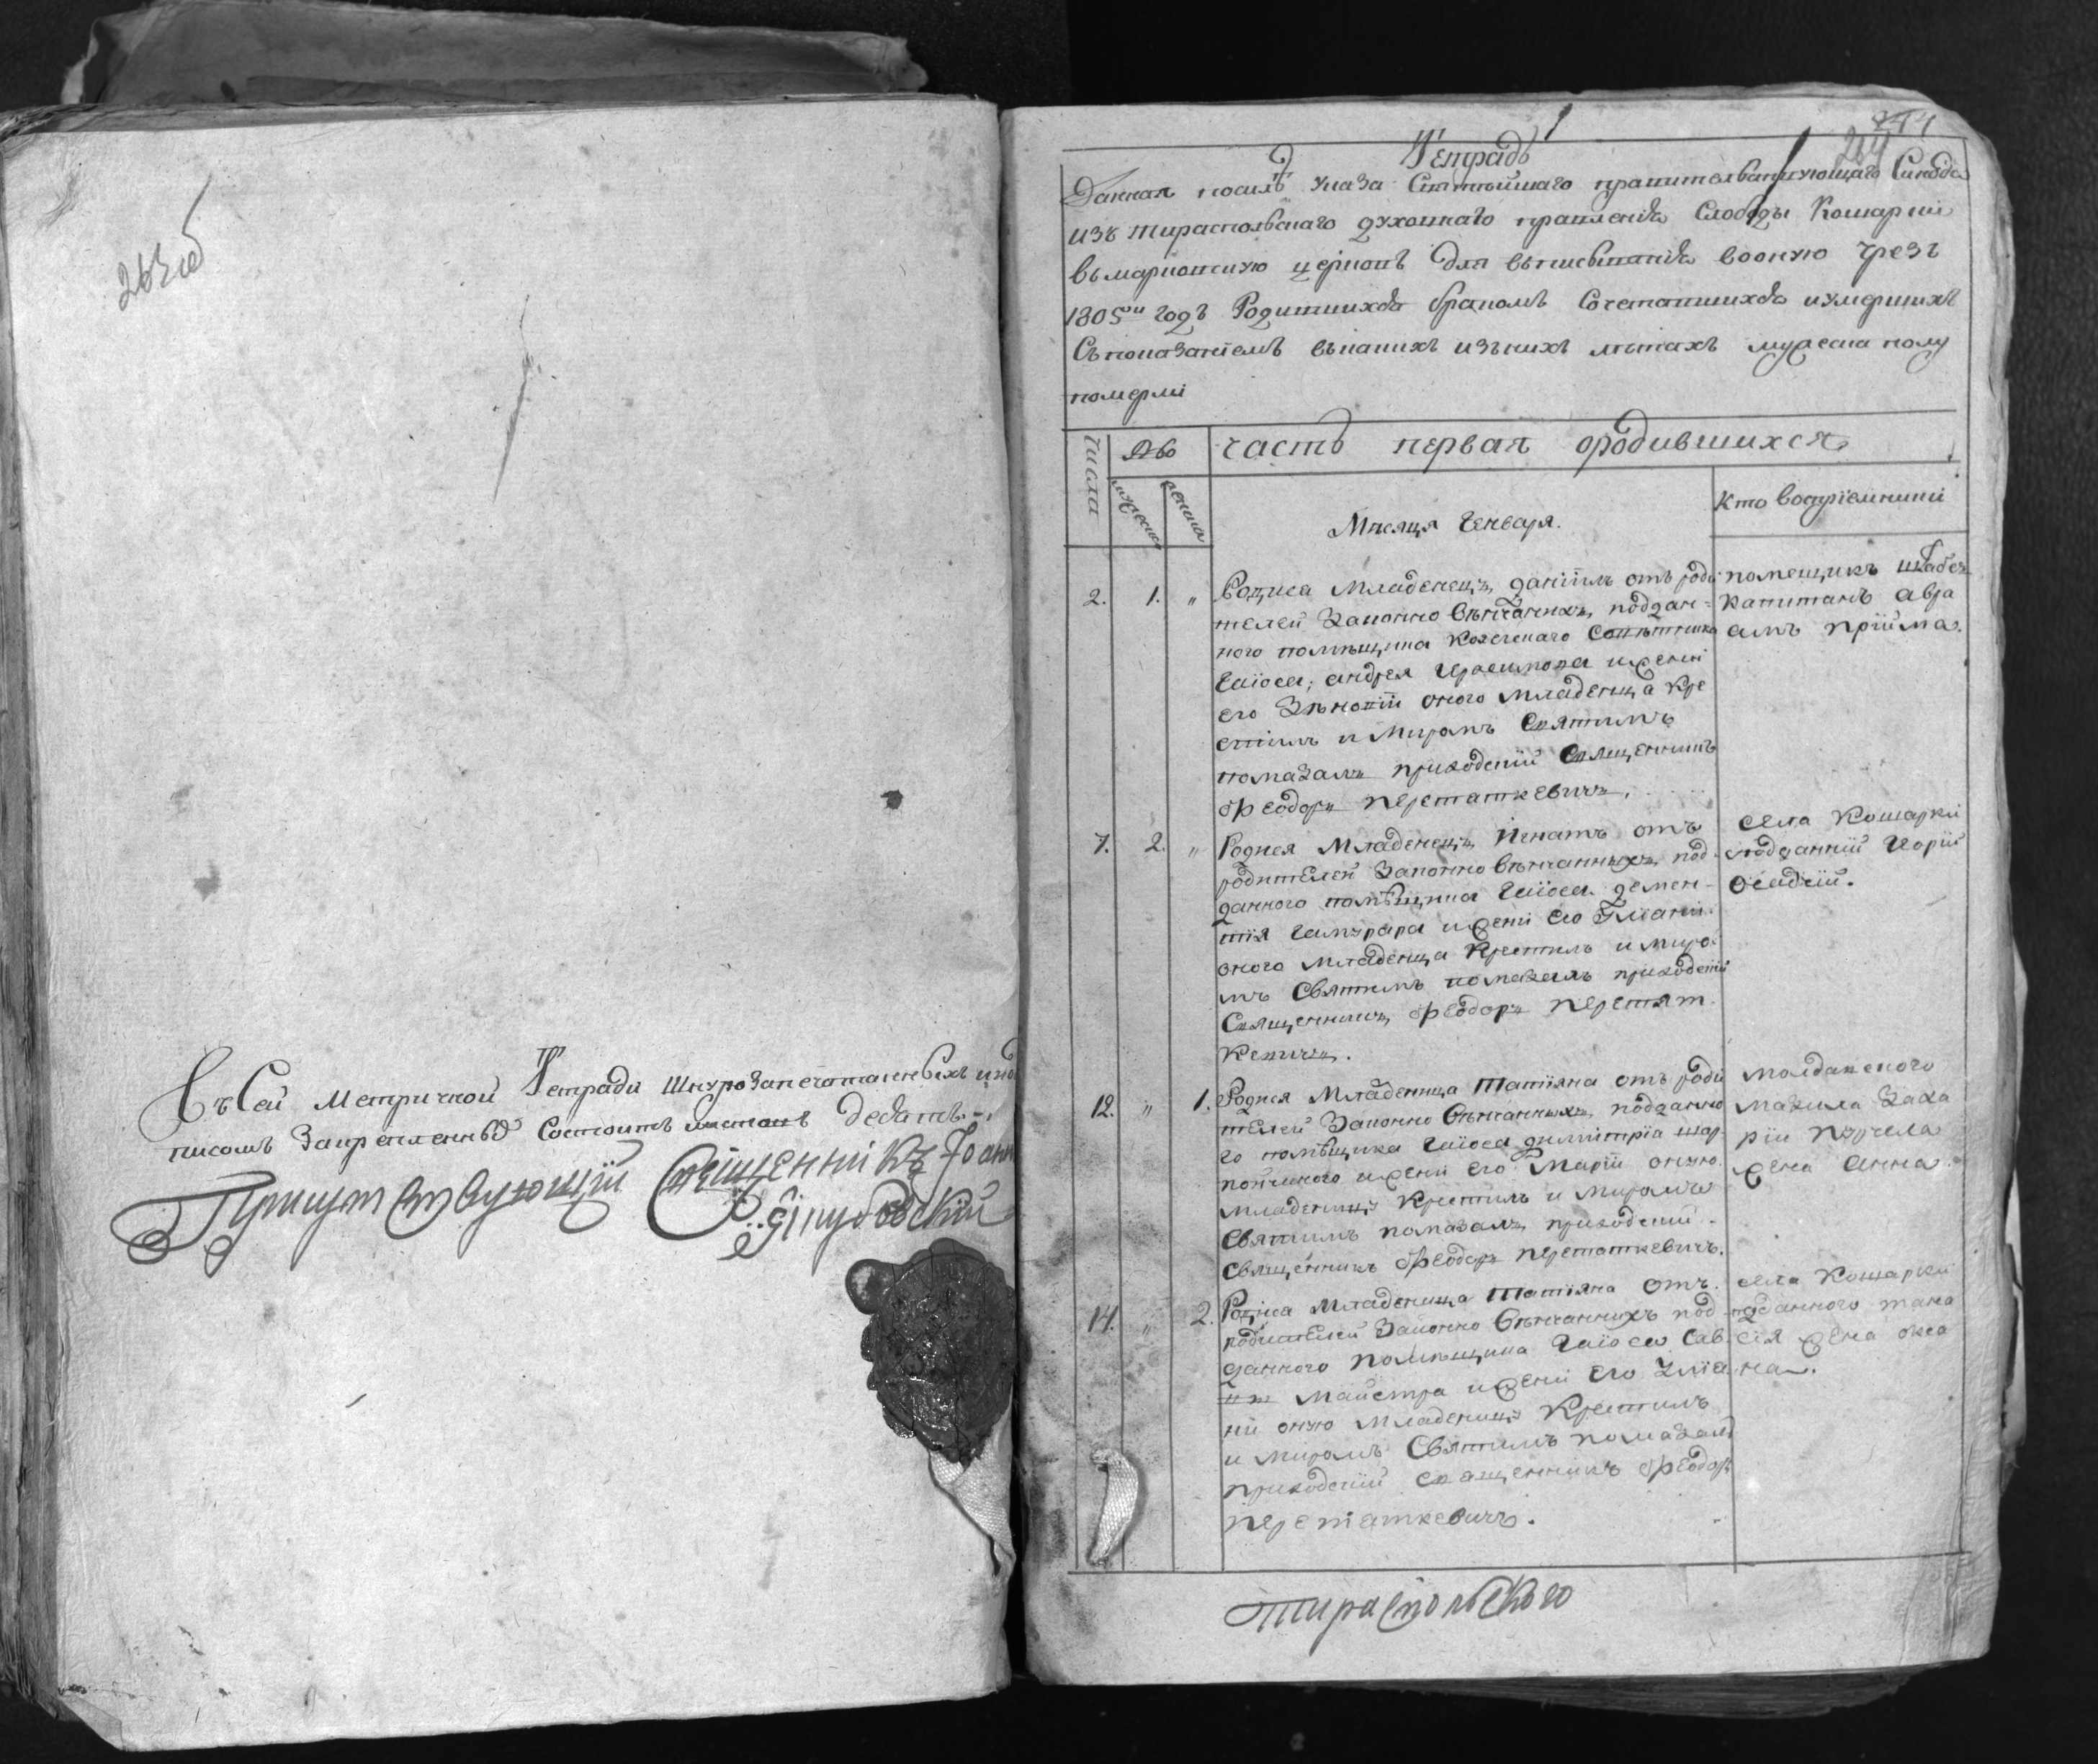 263об
Въ Сей Метричной Тетради шнурозапечатанныхъ и по
писомъ закрепленныхъ Состоитъ листовъ девять
Присутствующій Священникъ Іоанн
264
Тетрадь
Данная посилѣ указа Святѣйшаго правителвствующаго Синода
изъ тираспольскаго духовнаго правленія Слободы Кошарки
въ мариовскую церковь для вписыванія вооную чрезъ
1805й годъ Родившихся бракомъ Сочетавшихся иумершихъ
Съ показаніемъ вкакихъ изънихъ лѣтахъ мужеска полу
померли
числа
часть первая ородившихся
мужеска
женска
Мѣсяца Генваря.
Кто восприемники
2. 1. „ Родися Младенецъ, даніилъ отъ роди
телей Законно вѣнчанихъ, поддан-
ного помѣщика Колежскаго Совѣтника
Гаіоса; андрея Герасимова ижени
его Зѣновіи оного Младенца кре
стилъ и Миромъ Святимъ
помазалъ приходскій Священникъ
Феодоръ Перетаткевичъ.
помещикъ штабсъ
капитанъ авра
амъ Пріима.
7. 2. „ Родися Младенецъ Игнатъ отъ
родителей Законно вѣнчаннихъ, под-
данного помѣщика Гаіоса демен-
тія ижени его
оного младенца Крестилъ и миро
мъ Святимъ помазалъ приходскій
Священникъ, Феодоръ Перетят
кевичъ.
села Кошарки
подданній
Осадсій.
12. „ 1. Родися Младеница татіяна отъ роди
телей Законно вѣнчаннихъ, подданно
го помѣщика Гаіоса димитріа
ижени его Маріи оную
младеницу Крестилъ и Миромъ
Святимъ помазалъ, приходскій
Священникъ Феодоръ Перетаткевичъ.
молдавского
мазила Заха
рія
жена Анна.
14. „ 2. Родися Младеница татіяна отъ
родителей Законно вѣнчаннихъ под-
данного помѣщика Гаіоса Сав
Майстра ижени его Уліа
ни оную Младеницу Крестилъ
и миромъ Святимъ помазалъ
приходскій священникъ Феодоръ
Перетаткевичъ.
села Кошарки
подданного Фана
сія жена окса
на.
тираспольского